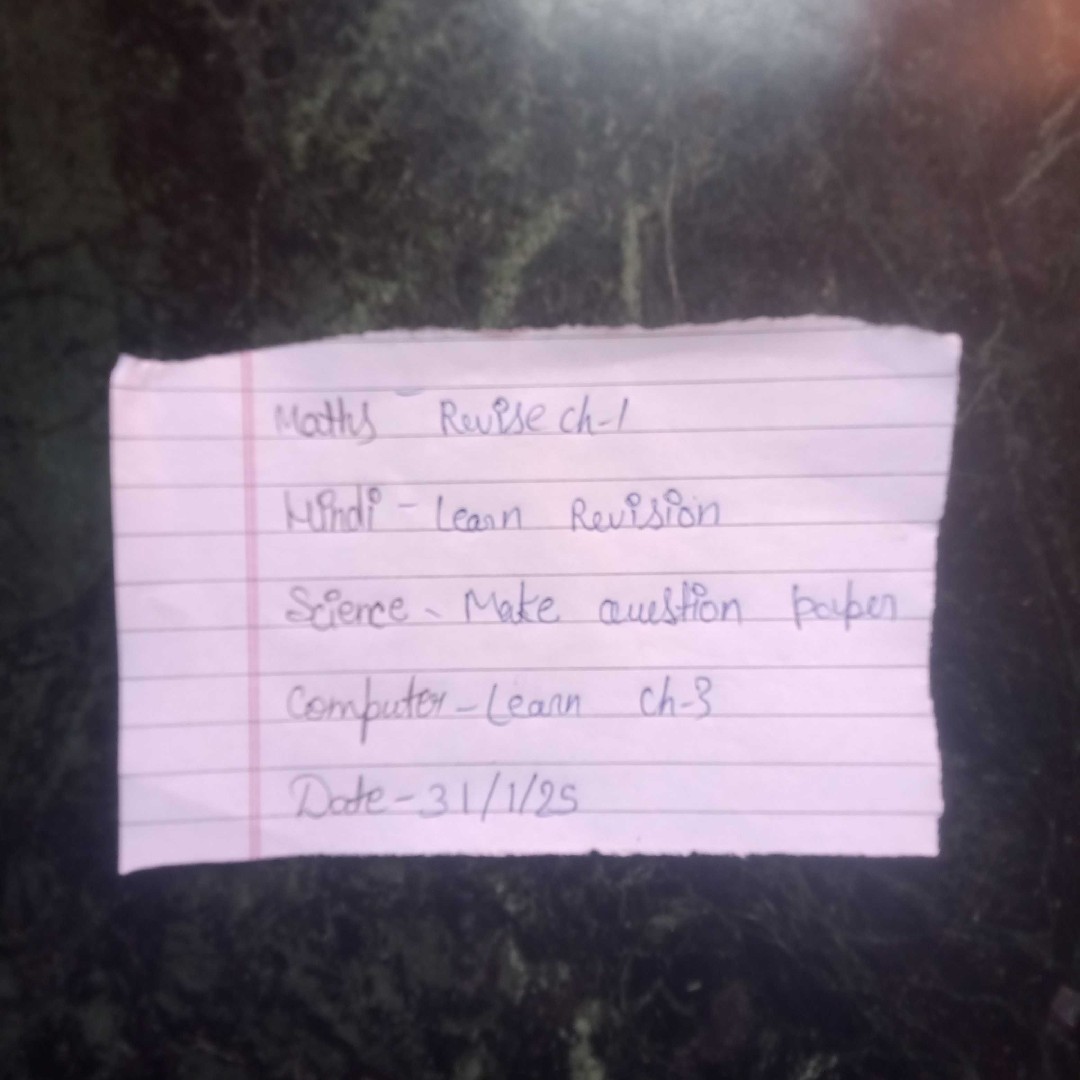 Maths Revise ch-1
Hindi - Learn Revision
Science - Make question paper
Computer - Learn ch-3
Date - 31/1/25